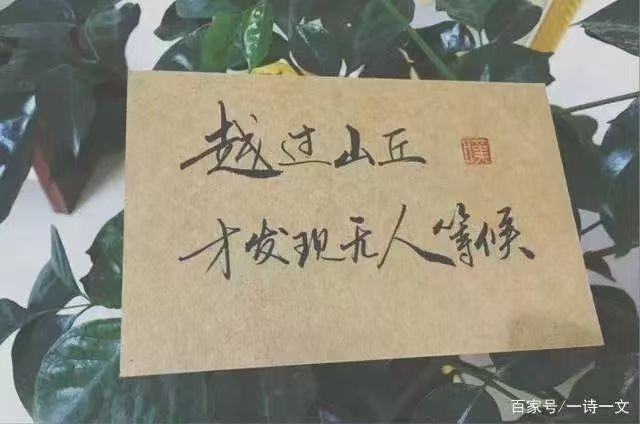 越过山丘
才发现无人等候
百家号/一诗一文